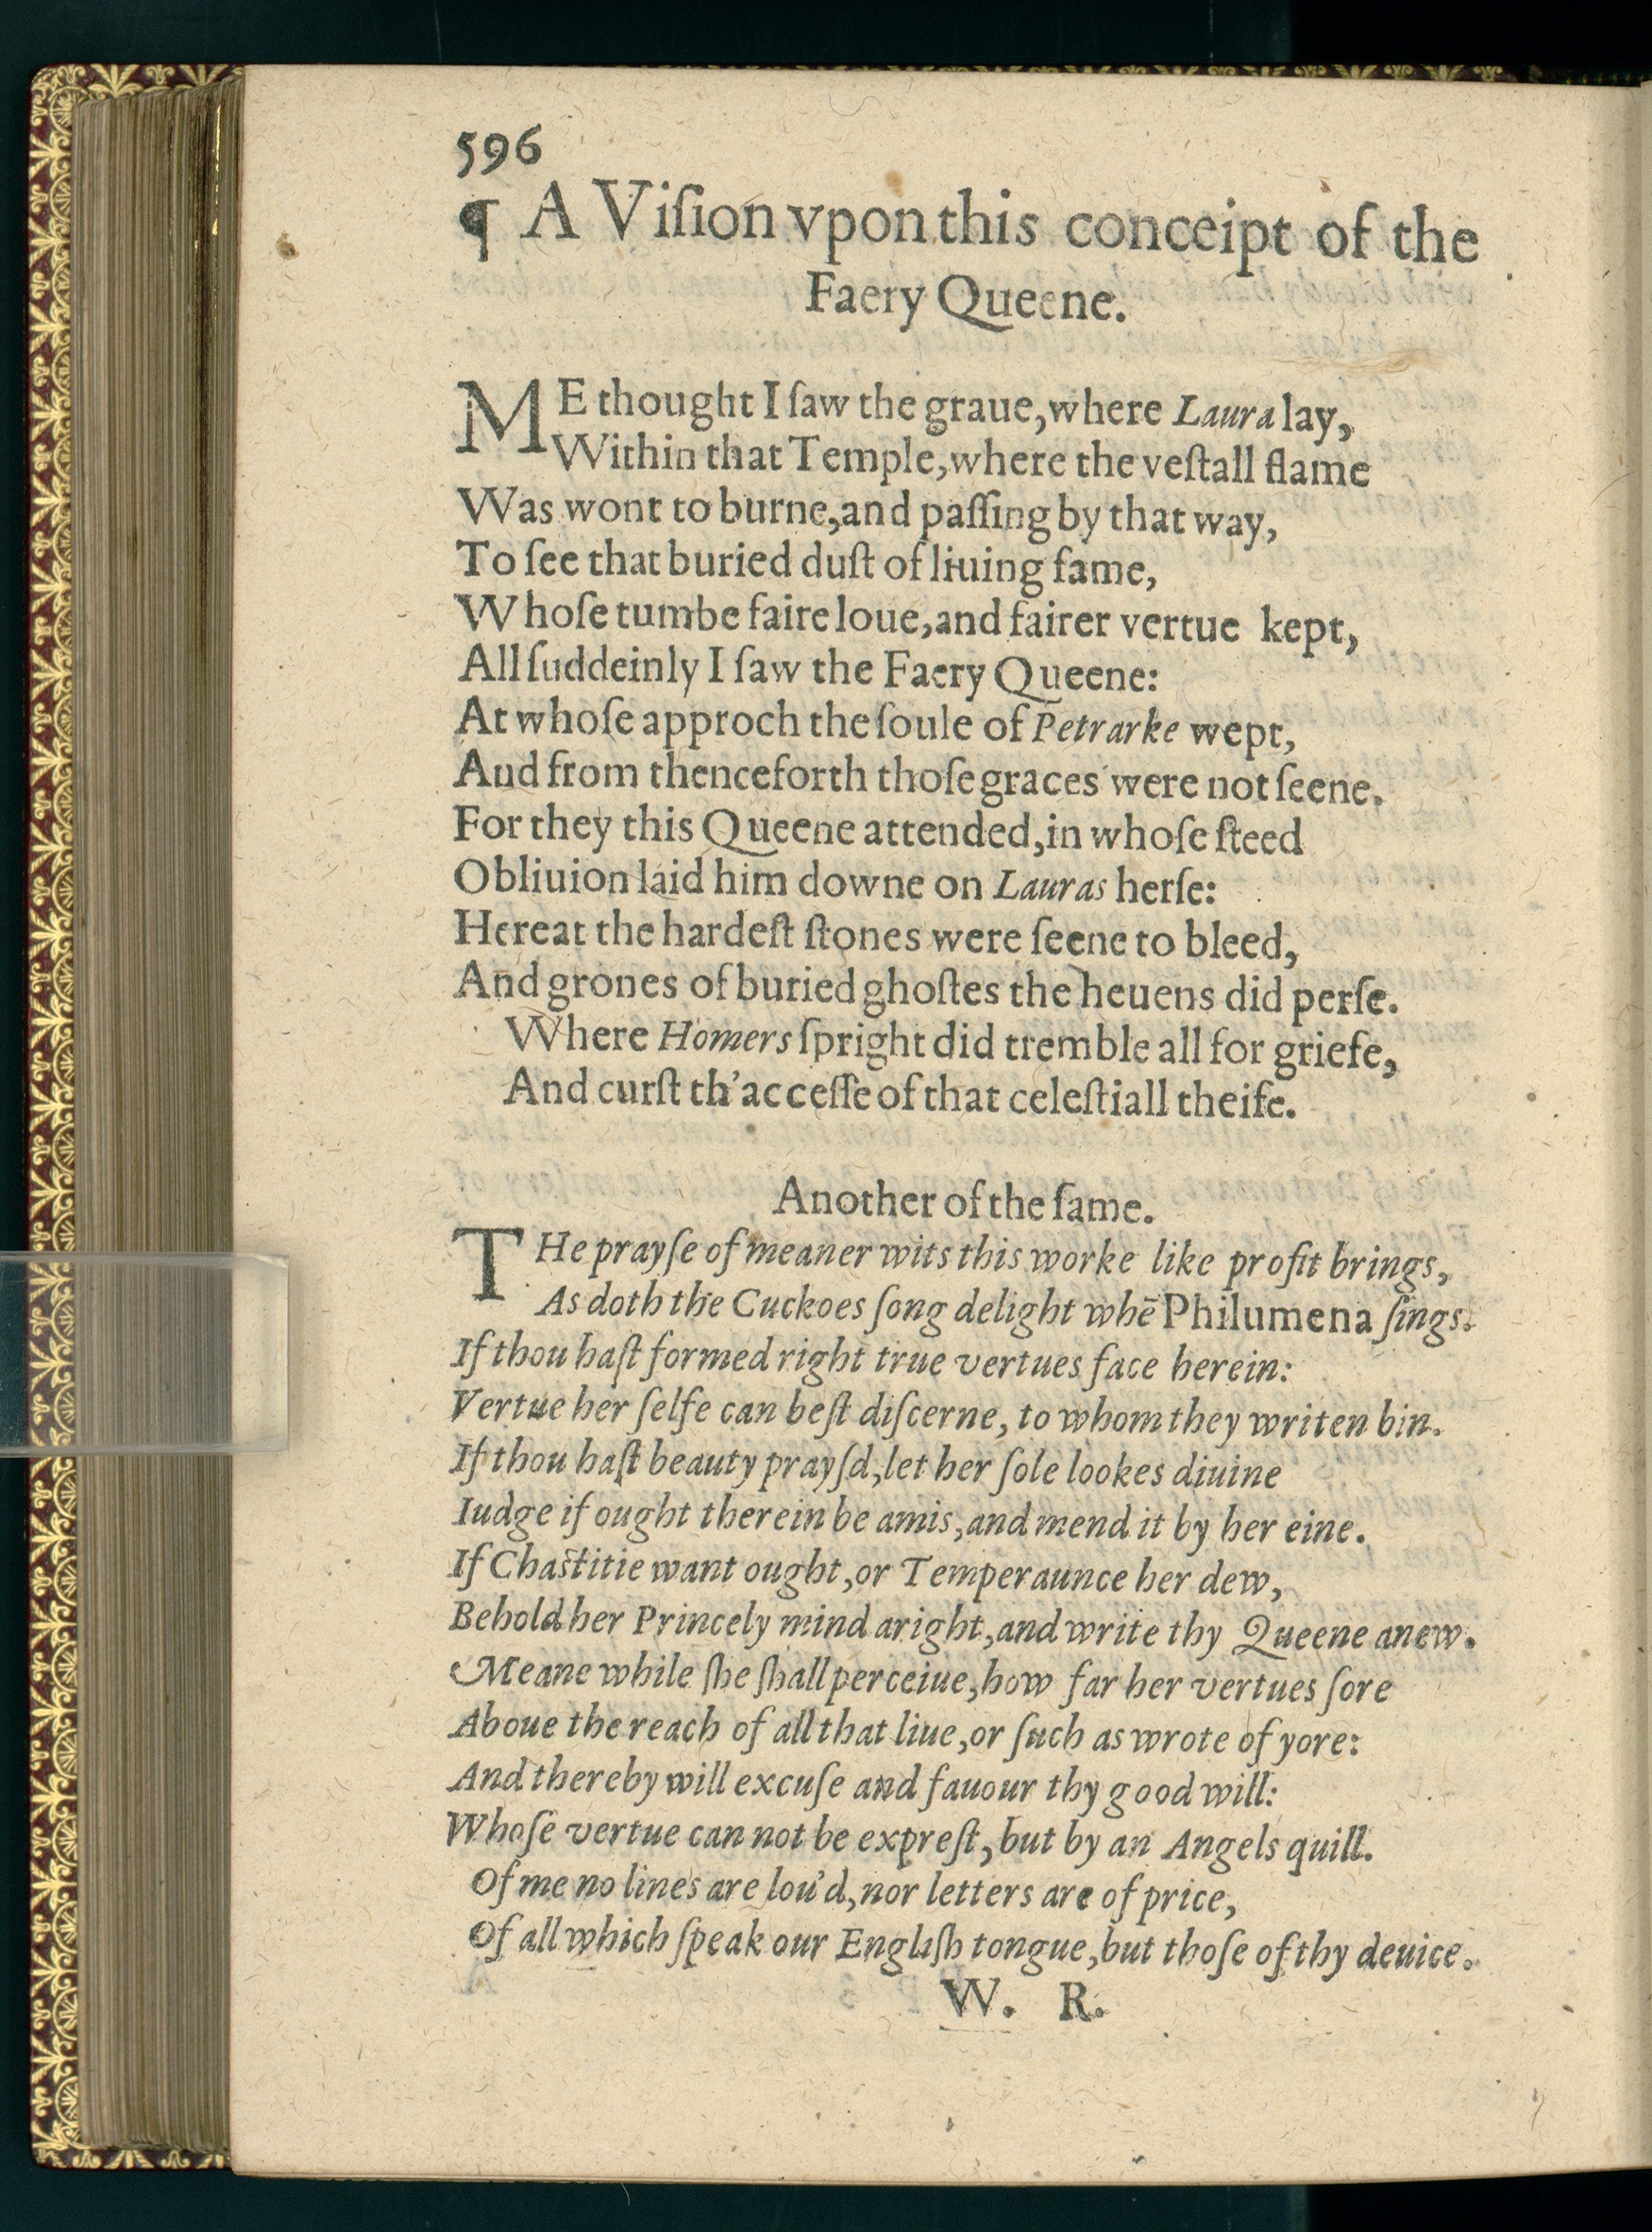 596
¶ A Viſion vpon this conceipt of the
Faery Queene.
ME thought I ſaw the graue, where Laura lay,
Within that Temple, where the veſtall flame
Was wont to burne, and paſſing by that way,
To ſee that buried duſt of liuing fame,
Whoſe tumbe faire loue, and fairer vertue kept,
All ſuddeinly I ſaw the Faery Queene:
At whoſe approch the ſoule of Petrarke wept,
Aud from thenceforth thoſe graces were not ſeene.
For they this Queene attended, in whoſe ſteed
Obliuion laid him downe on Lauras herſe:
Hereat the hardeſt ſtones were ſeene to bleed,
And grones of buried ghoſtes the heuens did perſe.
Where Homers ſpright did tremble all for griefe,
And curſt th'acceſſe of that celeſtiall theife.
Another of the ſame.
THe prayſe of meaner wits this worke like profit brings,
As doth the Cuckoes ſong delight whē Philumena ſings.
If thou haſt formed right true vertues face herein:
Vertue her ſelfe can beſt diſcerne, to whom they writen bin.
If thou haſt beauty prayſd, let her ſole lookes diuine
Iudge if ought therein be amis, and mend it by her eine.
If Chaſtitie want ought, or Temperaunce her dew,
Behold her Princely mind aright, and write thy Queene anew.
Meane while ſhe ſhall perceiue, how far her vertues ſore
Aboue the reach of all that liue, or ſuch as wrote of yore:
And thereby will excuſe and fauour thy good will:
Whoſe vertue can not be expreſt, but by an Angels quill.
Of me no lines are lou'd, nor letters are of price,
Of all which ſpeak our Engliſh tongue, but thoſe of thy deuice.
W. R.